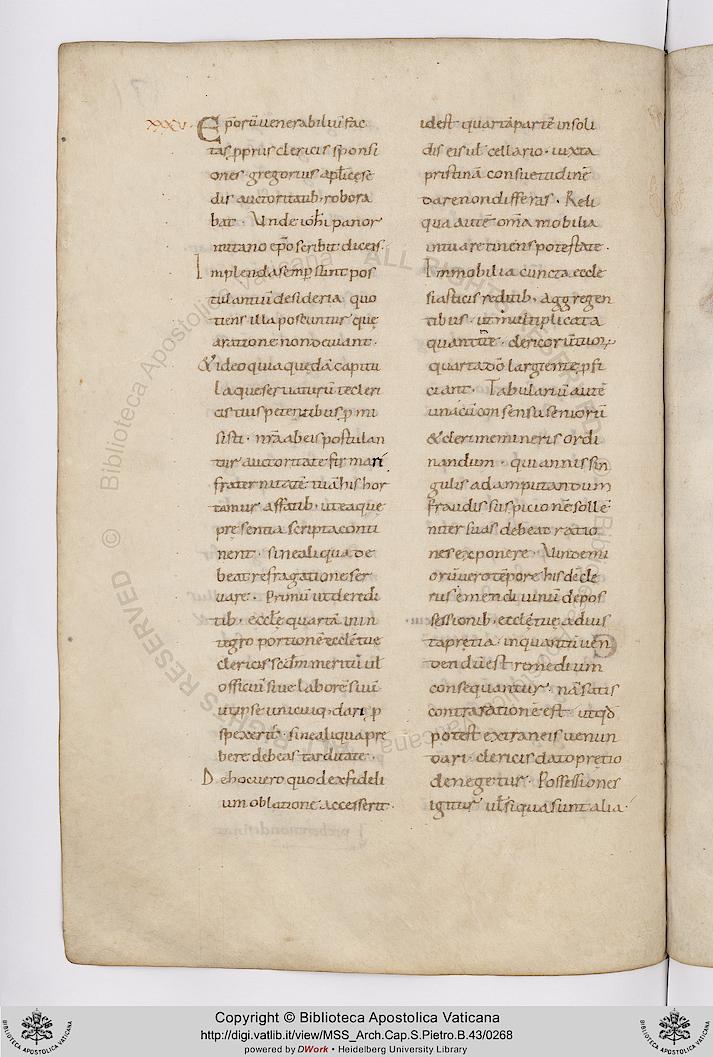 xxxv.
Eporū venerabiliū fac
tas pprus clericis sponsi
ones. gregorius aplicę se
dis auctoritatib. robora
bat. Unde ioħi panor
mitano epō scribit dicens.
Implenda semp sunt pos
tulantiū desideria quo
tiens illa poscuntur quę
a ratione non devi ant.
& ideo quia quędā capitu
la quę servaturū te cleri
cis tuis petentibus p mi
sisti. nr̄a ab eis postulan
tur auctoritate firmari
fraternitatē tuā his hor
tamur affatib. ut ea quę
pręsentia scripta conti
nent. sine aliqua de
beat refragatione ser
vare. Primū ut de redi
tib. ecclę quartā in in
tegro portionē ecclę tuę
clericis scdm meritū ul
officiū sive laborē suū
ut ipse unicuiq; dari p
spexerit. sine aliqua prę
bere debeas tarditate.
De hoc vero quod ex fideli
um oblatione accesserit.
id est quartā partē in soli
dis eis ul cellario. iuxta
pristinā consuetudinē
dare non differas. Reli
qua autē om̄a mobilia
in tua retinens potestate.
Immobilia cuncta eccle
siasticis reditib. aggregen
tibus. ut multiplicata
quantitate. clericorū tuorū
quarta dō largiente pfi
ciant. Tabulariū autē
una cū consensu seniorū
& cleri memineris ordi
nandum. qui annis sin
gulis ad amputandum
fraudis suspicionē sollē
niter suas debeat ratio
nes exponere. Vindemi
orū vero tēpore his de cle
rus emendi vinū de pos
sessionib. ecclę tuę ad ius
ta pretia. in quantū ven
dendū est remedium
consequantur. nā satis
contra rationē est. ut qd
potest extraneis venun
dari. clericis dato prętio
denegetur. Possessiones
igitur ul si qua sunt alia.
ALL RIGHTS RESERVED © Biblioteca Apostolica Vaticana
Copyright © Biblioteca Apostolica Vaticana
http://digi.vatlib.it/view/MSS_Arch.Cap.S.Pietro.B.43/0268
powered by DWork • Heidelberg University Library
BIBLIOTECA APOSTOLICA VATICANA
BIBLIOTECA APOSTOLICA VATICANA